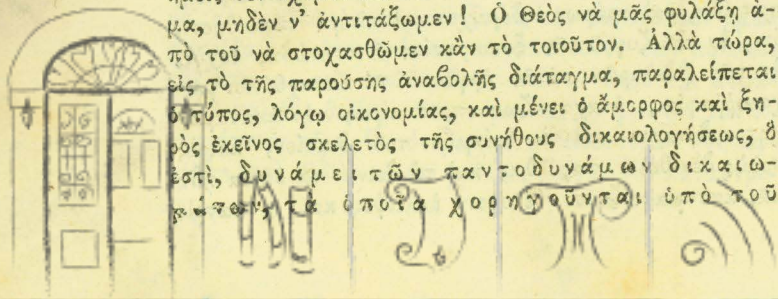 μα, μηδὲν ν' ἀντιτάξωμεν! Ὁ Θεὸς νὰ μᾶς φυλάξῃ ἀ-
πὸ τοῦ νὰ στοχασθῶμεν κἂν τὸ τοιοῦτον. Ἀλλὰ τώρα,
εἰς τὸ τῆς παρούσης ἀναβολῆς διάταγμα, παραλείπεται
ὁ τύπος, λόγῳ οἰκονομίας, καὶ μένει ὁ ἄμορφος καὶ ξη-
ρὸς ἐκεῖνος σκελετὸς τῆς συνήθους δικαιολογήσεως, ὅ
ἐστὶ, δυνάμει τῶν παντοδυνάμων δικαιω-
μάτων, τὰ ὁποῖα χορηγοῦνται ὑπὸ τοῦ